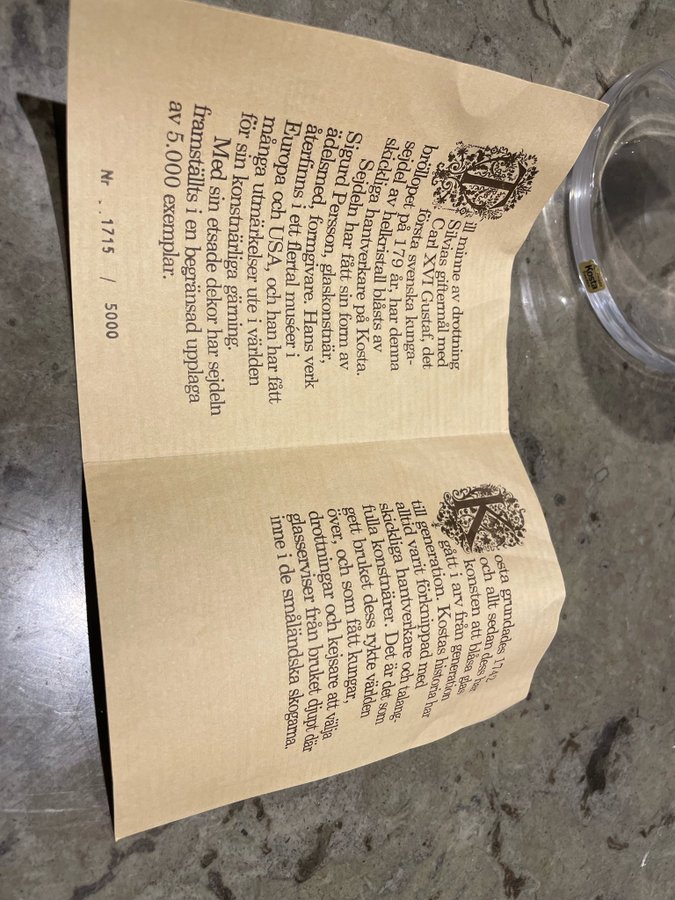 Till minne av drottning
Silvias giftermål med
Carl XVI Gustaf, det
första svenska kunga-
bröllopet på 179 år, har denna
sejdel av helkristall blåsts av
skickliga hantverkare på Kosta.
Sejdeln har fått sin form av
Sigurd Persson, glaskonstnär,
ädelsmed, formgivare. Hans verk
återfinns i ett flertal muséer i
Europa och USA, och han har fått
många utmärkelser ute i världen
för sin konstnärliga gärning.
Med sin etsade dekor har sejdeln
framställts i en begränsad upplaga
av 5.000 exemplar.
Nr . 1715 / 5000
Kosta grundades 1742,
och allt sedan dess har
konsten att blåsa glas
gått i arv från generation
till generation. Kostas historia har
alltid varit förknippad med
skickliga hantverkare och talang-
fulla konstnärer. Det är det som
gett bruket dess rykte världen
över, och som fått kungar,
drottningar och kejsare att välja
glasserviser från bruket djupt där
inne i de småländska skogarna.
Kosta